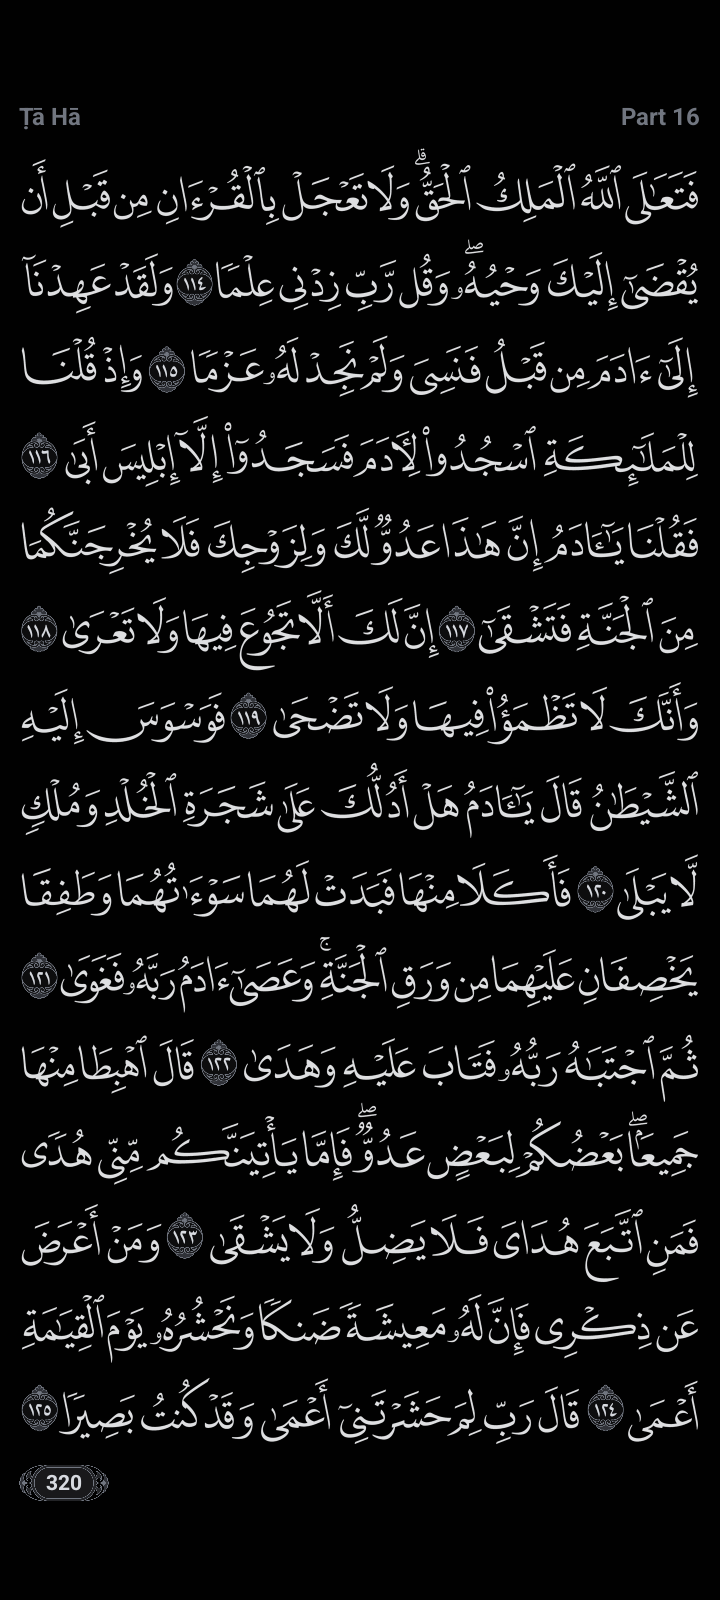 Ṭā Hā
Part 16
فَتَعَـٰلَى ٱللَّهُ ٱلْمَلِكُ ٱلْحَقُّ ۗ وَلَا تَعْجَلْ بِٱلْقُرْءَانِ مِن قَبْلِ أَن
يُقْضَىٰٓ إِلَيْكَ وَحْيُهُۥ ۖ وَقُل رَّبِّ زِدْنِى عِلْمًا ١١٤ وَلَقَدْ عَهِدْنَآ
إِلَىٰٓ ءَادَمَ مِن قَبْلُ فَنَسِىَ وَلَمْ نَجِدْ لَهُۥ عَزْمًا ١١٥ وَإِذْ قُلْنَا
لِلْمَلَـٰٓئِكَةِ ٱسْجُدُوا۟ لِـَٔادَمَ فَسَجَدُوٓا۟ إِلَّآ إِبْلِيسَ أَبَىٰ ١١٦
فَقُلْنَا يَـٰٓـَٔادَمُ إِنَّ هَـٰذَا عَدُوٌّ لَّكَ وَلِزَوْجِكَ فَلَا يُخْرِجَنَّكُمَا
مِنَ ٱلْجَنَّةِ فَتَشْقَىٰٓ ١١٧ إِنَّ لَكَ أَلَّا تَجُوعَ فِيهَا وَلَا تَعْرَىٰ ١١٨
وَأَنَّكَ لَا تَظْمَؤُا۟ فِيهَا وَلَا تَضْحَىٰ ١١٩ فَوَسْوَسَ إِلَيْهِ
ٱلشَّيْطَـٰنُ قَالَ يَـٰٓـَٔادَمُ هَلْ أَدُلُّكَ عَلَىٰ شَجَرَةِ ٱلْخُلْدِ وَمُلْكٍ
لَّا يَبْلَىٰ ١٢٠ فَأَكَلَا مِنْهَا فَبَدَتْ لَهُمَا سَوْءَٰتُهُمَا وَطَفِقَا
يَخْصِفَانِ عَلَيْهِمَا مِن وَرَقِ ٱلْجَنَّةِ ۚ وَعَصَىٰٓ ءَادَمُ رَبَّهُۥ فَغَوَىٰ ١٢١
ثُمَّ ٱجْتَبَـٰهُ رَبُّهُۥ فَتَابَ عَلَيْهِ وَهَدَىٰ ١٢٢ قَالَ ٱهْبِطَا مِنْهَا
جَمِيعًۢا ۖ بَعْضُكُمْ لِبَعْضٍ عَدُوٌّ ۖ فَإِمَّا يَأْتِيَنَّكُم مِّنِّى هُدًى
فَمَنِ ٱتَّبَعَ هُدَاىَ فَلَا يَضِلُّ وَلَا يَشْقَىٰ ١٢٣ وَمَنْ أَعْرَضَ
عَن ذِكْرِى فَإِنَّ لَهُۥ مَعِيشَةً ضَنكًا وَنَحْشُرُهُۥ يَوْمَ ٱلْقِيَـٰمَةِ
أَعْمَىٰ ١٢٤ قَالَ رَبِّ لِمَ حَشَرْتَنِىٓ أَعْمَىٰ وَقَدْ كُنتُ بَصِيرًا ١٢٥
320